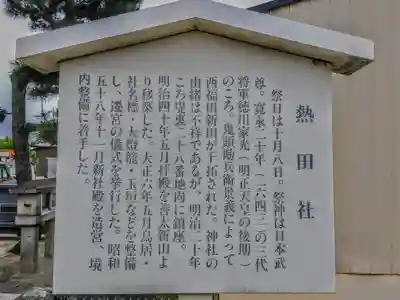 熱田社
祭日は十月八日。祭神は日本武
尊。寛永二十年(一六四三)の三代
将軍徳川家光(明正天皇の後期)
のころ。鬼頭勘兵衛景義によって
西福田新田が干拓された。神社の
由緒は不祥であるが、明治二十年
ころ堤東二十八番地内に鎮座。
明治四十年五月拝殿を善太新田よ
り移築した。大正六年五月鳥居・
社名標・大燈籠・玉垣などを整備
し、遷宮の儀式を挙行した。昭和
五十八年十二月新社殿を造営、境
内整備に着手した。